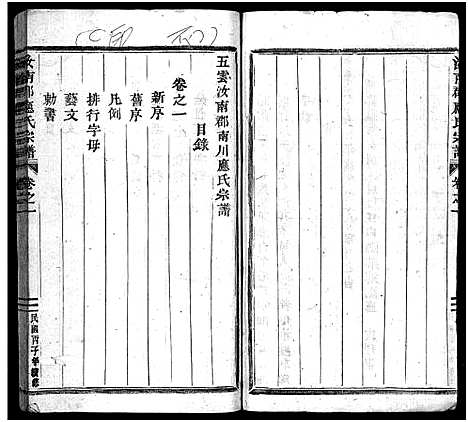 汝南郡應氏宗譜
卷之一
五雲汝南郡南川應氏宗譜
目錄
卷之一
新序
舊序
凡例
排行字母
藝文
勅書
汝南郡應氏宗譜
卷之一
民國丙子年續修